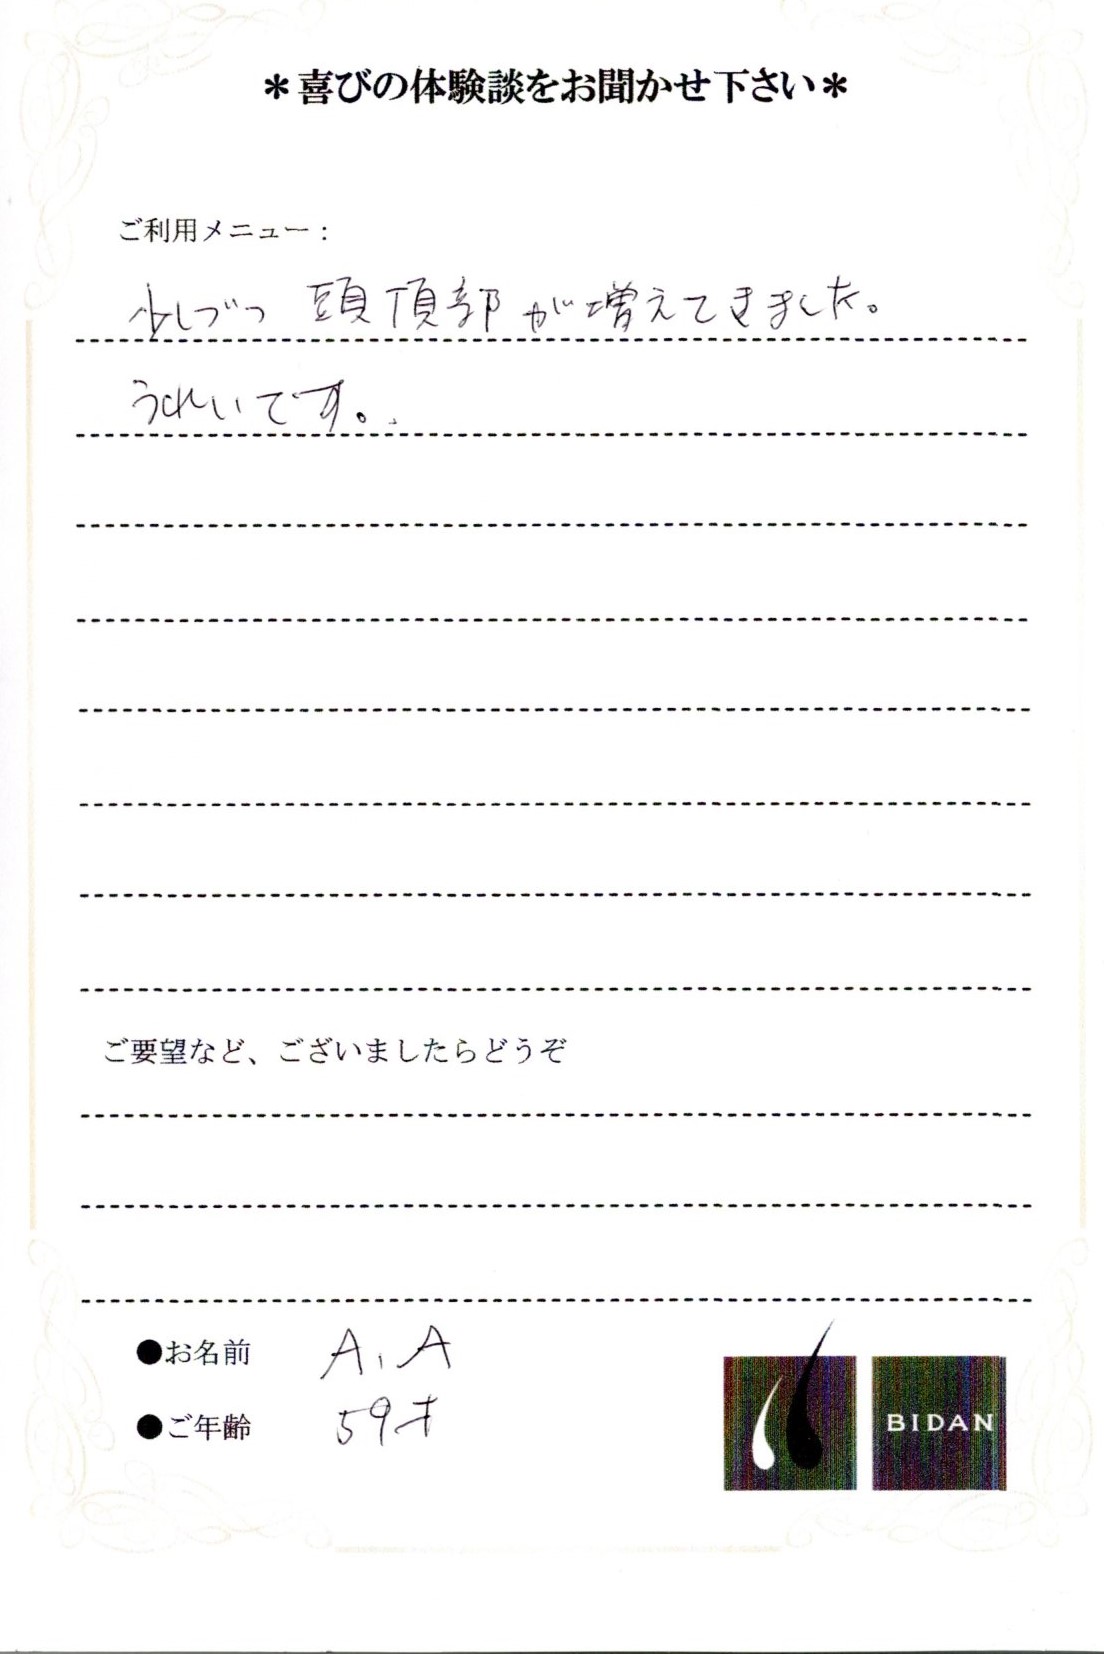 ＊喜びの体験談をお聞かせ下さい＊
ご利用メニュー：
少しづつ 頭頂部が増えてきました。
うれしいです。
ご要望など、ございましたらどうぞ
●お名前 A.A
●ご年齢 59才
BIDAN